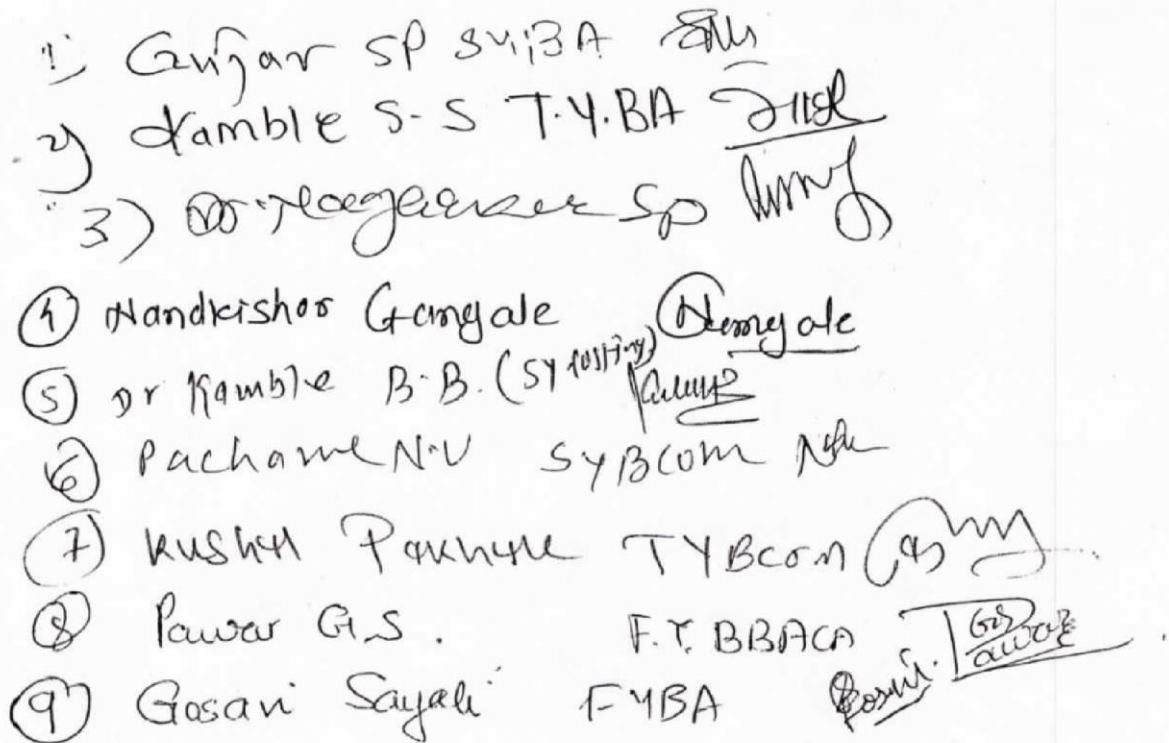 1) Gujar SP S.Y.BA
2) Kamble S-S T.Y.BA
3) Dr. Nagarkar Sp
4 Nandkishor Gangale Nemgale
5 Dr Kamble B.B. (SY
6 Pachame N.V SYBCOM
7 Kushal TYBcom
8 Pawar G.S. F.Y. BBACA GS awar
9 Gosavi Sayali FYBA Gosavi.